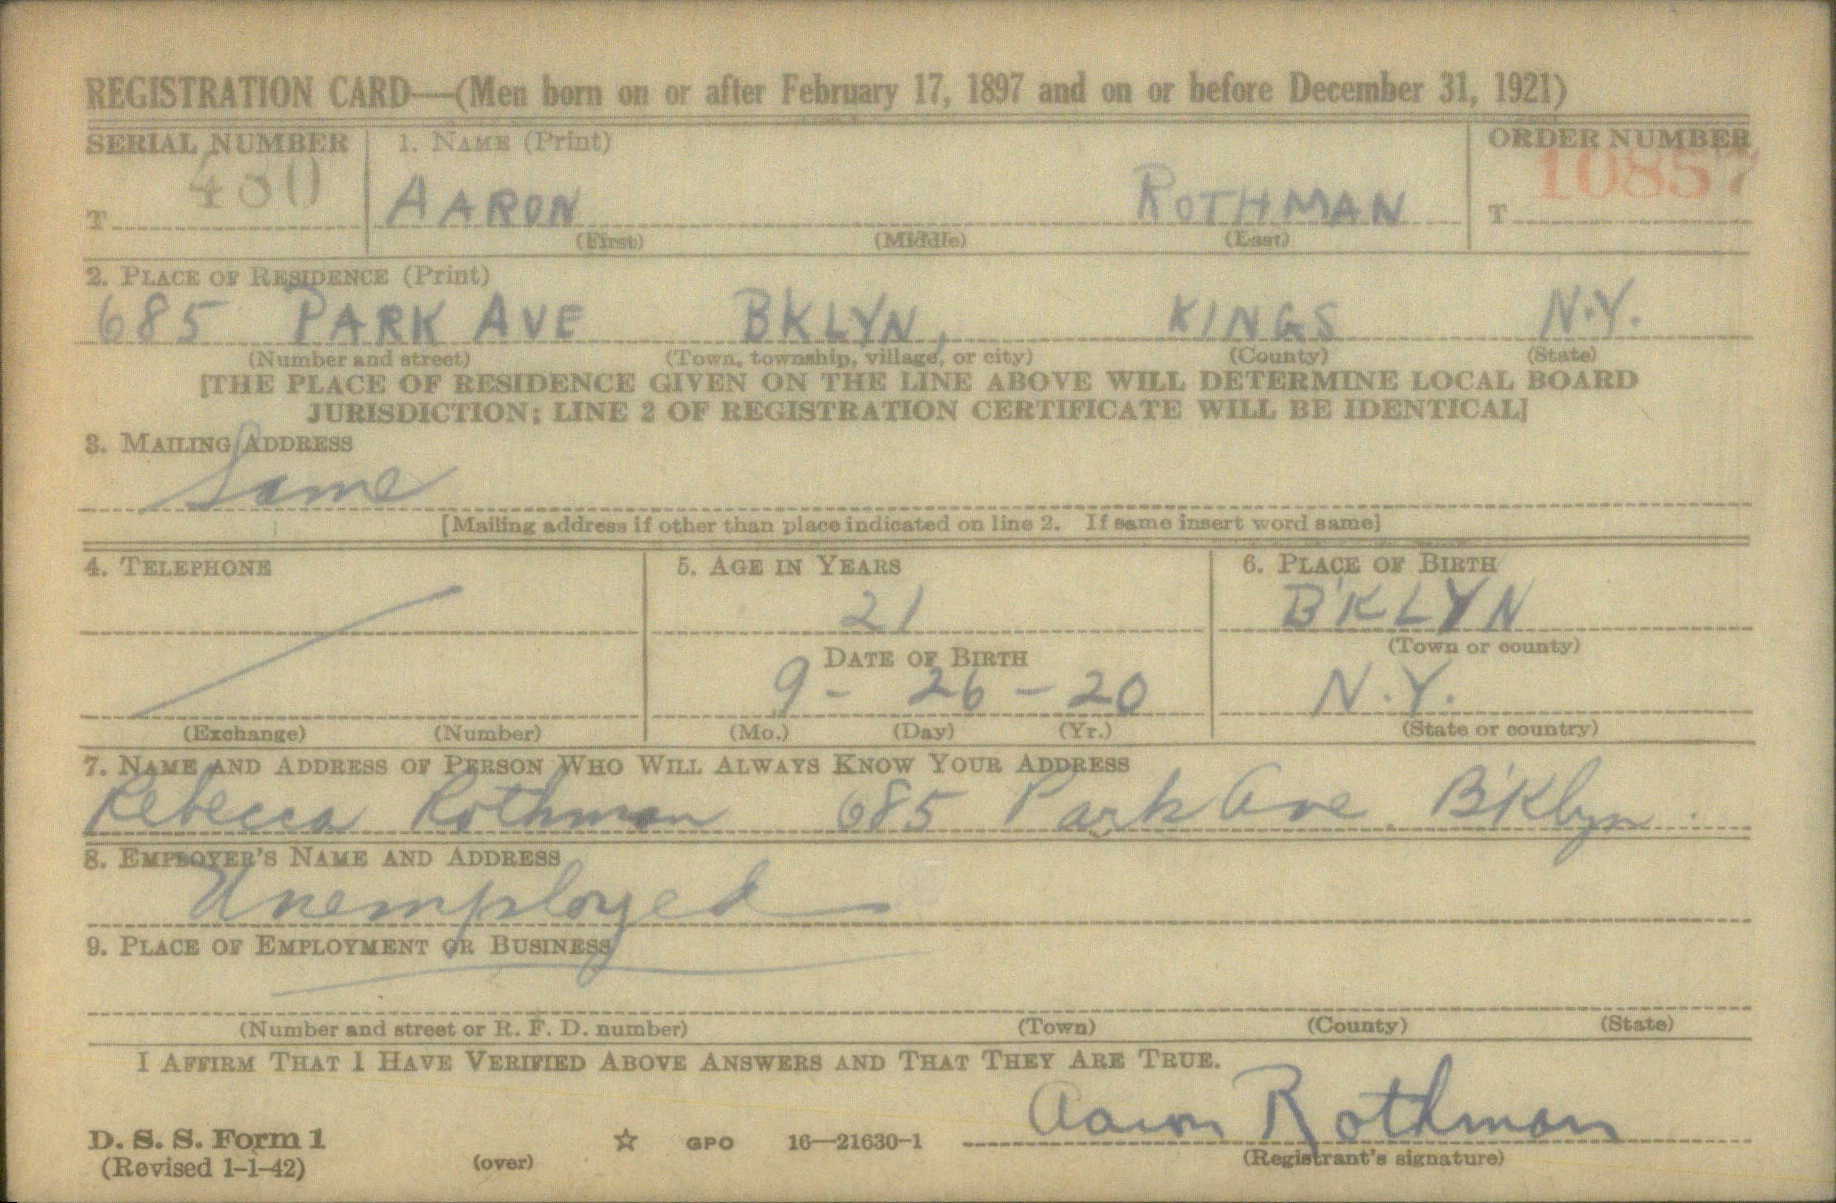 REGISTRATION CARD—(Men born on or after February 17, 1897 and on or before December 31, 1921)
SERIAL NUMBER 1. NAME (Print) ORDER NUMBER
T 480 AARON ROTHMAN T 10857
(First) (Middle) (Last)
2. PLACE OF RESIDENCE (Print)
685 PARK AVE BKLYN, KINGS N.Y.
(Number and street) (Town, township, village, or city) (County) (State)
[THE PLACE OF RESIDENCE GIVEN ON THE LINE ABOVE WILL DETERMINE LOCAL BOARD
JURISDICTION; LINE 2 OF REGISTRATION CERTIFICATE WILL BE IDENTICAL]
3. MAILING ADDRESS
Same
[Mailing address if other than place indicated on line 2. If same insert word same]
4. TELEPHONE 5. AGE IN YEARS 6. PLACE OF BIRTH
21 B'KLYN
DATE OF BIRTH (Town or county)
9 - 26 - 20 N.Y.
(Exchange) (Number) (Mo.) (Day) (Yr.) (State or country)
7. NAME AND ADDRESS OF PERSON WHO WILL ALWAYS KNOW YOUR ADDRESS
Rebecca Rothman 685 Park Ave. B'Klyn.
8. EMPLOYER'S NAME AND ADDRESS
Unemployed
9. PLACE OF EMPLOYMENT OR BUSINESS
(Number and street or R. F. D. number) (Town) (County) (State)
I AFFIRM THAT I HAVE VERIFIED ABOVE ANSWERS AND THAT THEY ARE TRUE.
Aaron Rothman
D. S. S. Form 1 ☆ GPO 16—21630-1
(Revised 1-1-42) (over) (Registrant's signature)